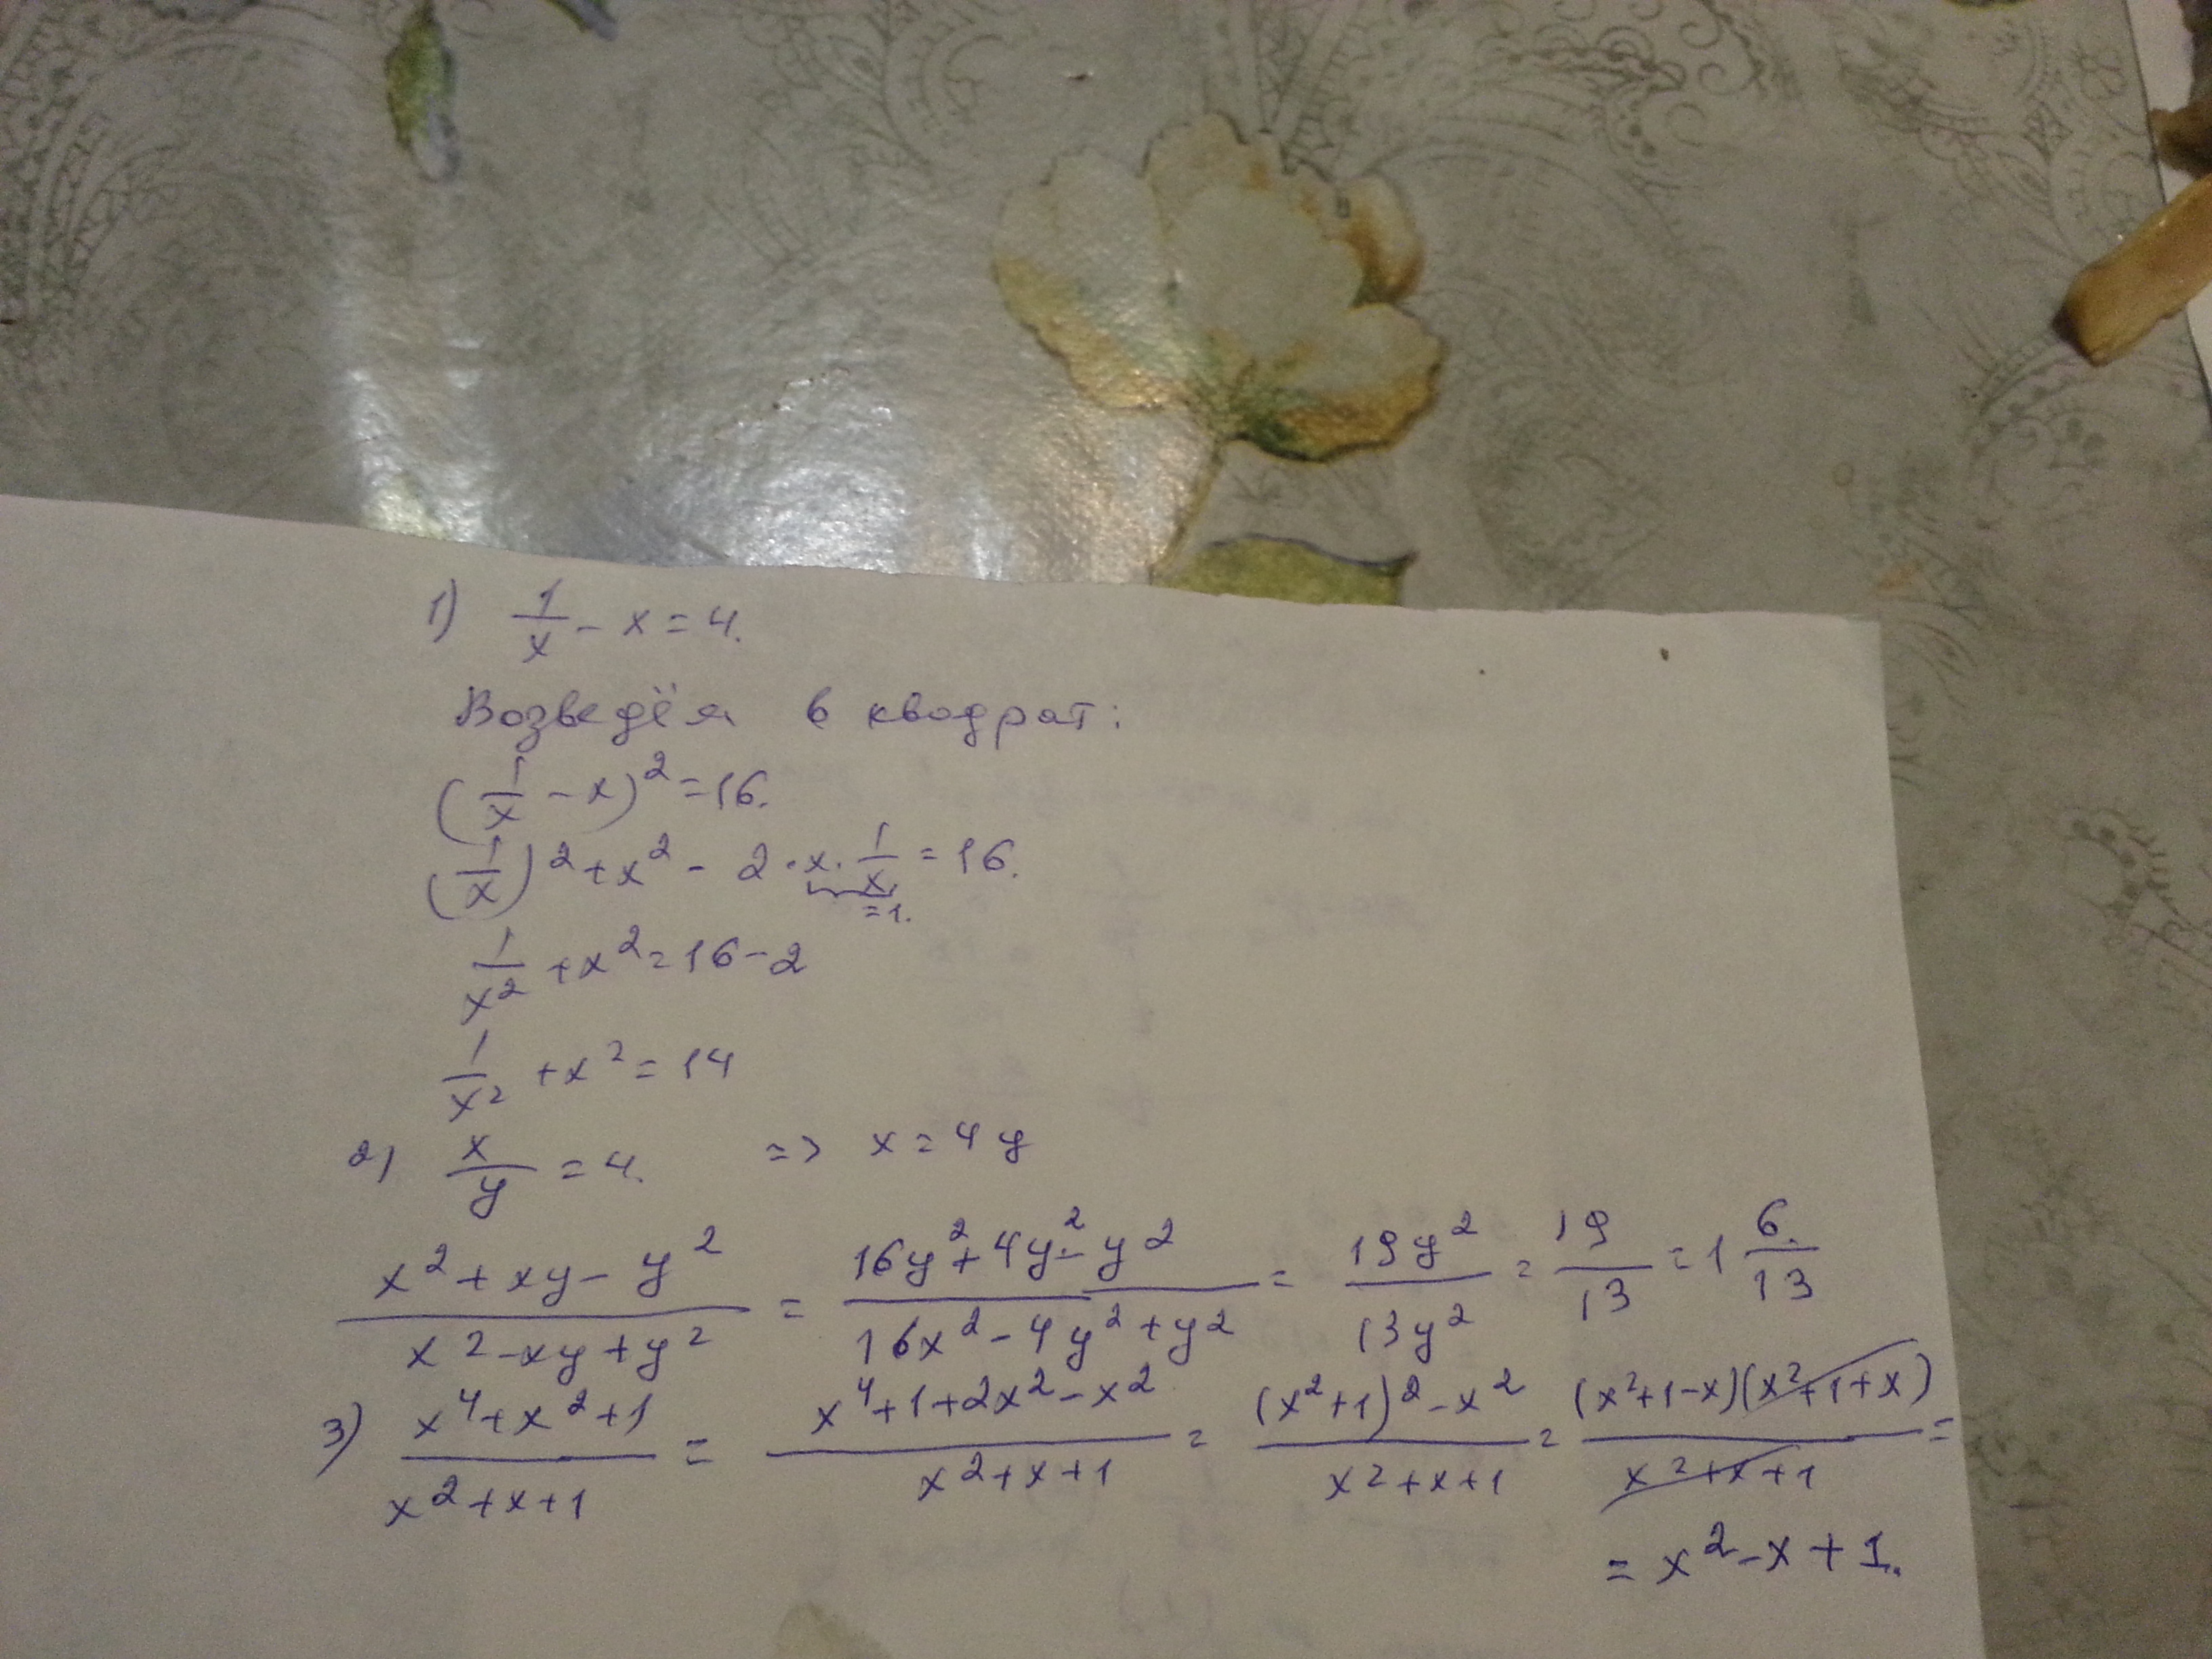 1) 1/x - x = 4.
Возведём в квадрат:
(1/x - x)² = 16.
(1/x)² + x² - 2·x·1/x = 16.
=1.
1/x² + x² = 16 - 2
1/x² + x² = 14
2) x/y = 4. => x = 4y
(x² + xy - y²)/(x² - xy + y²) = (16y² + 4y² - y²)/(16x² - 4y² + y²) = 19y²/13y² = 19/13 = 1 6/13
3) (x⁴ + x² + 1)/(x² + x + 1) = (x⁴ + 1 + 2x² - x²)/(x² + x + 1) = ((x² + 1)² - x²)/(x² + x + 1) = (x² + 1 - x)(x² + 1 + x)/(x² + x + 1) =
= x² - x + 1.